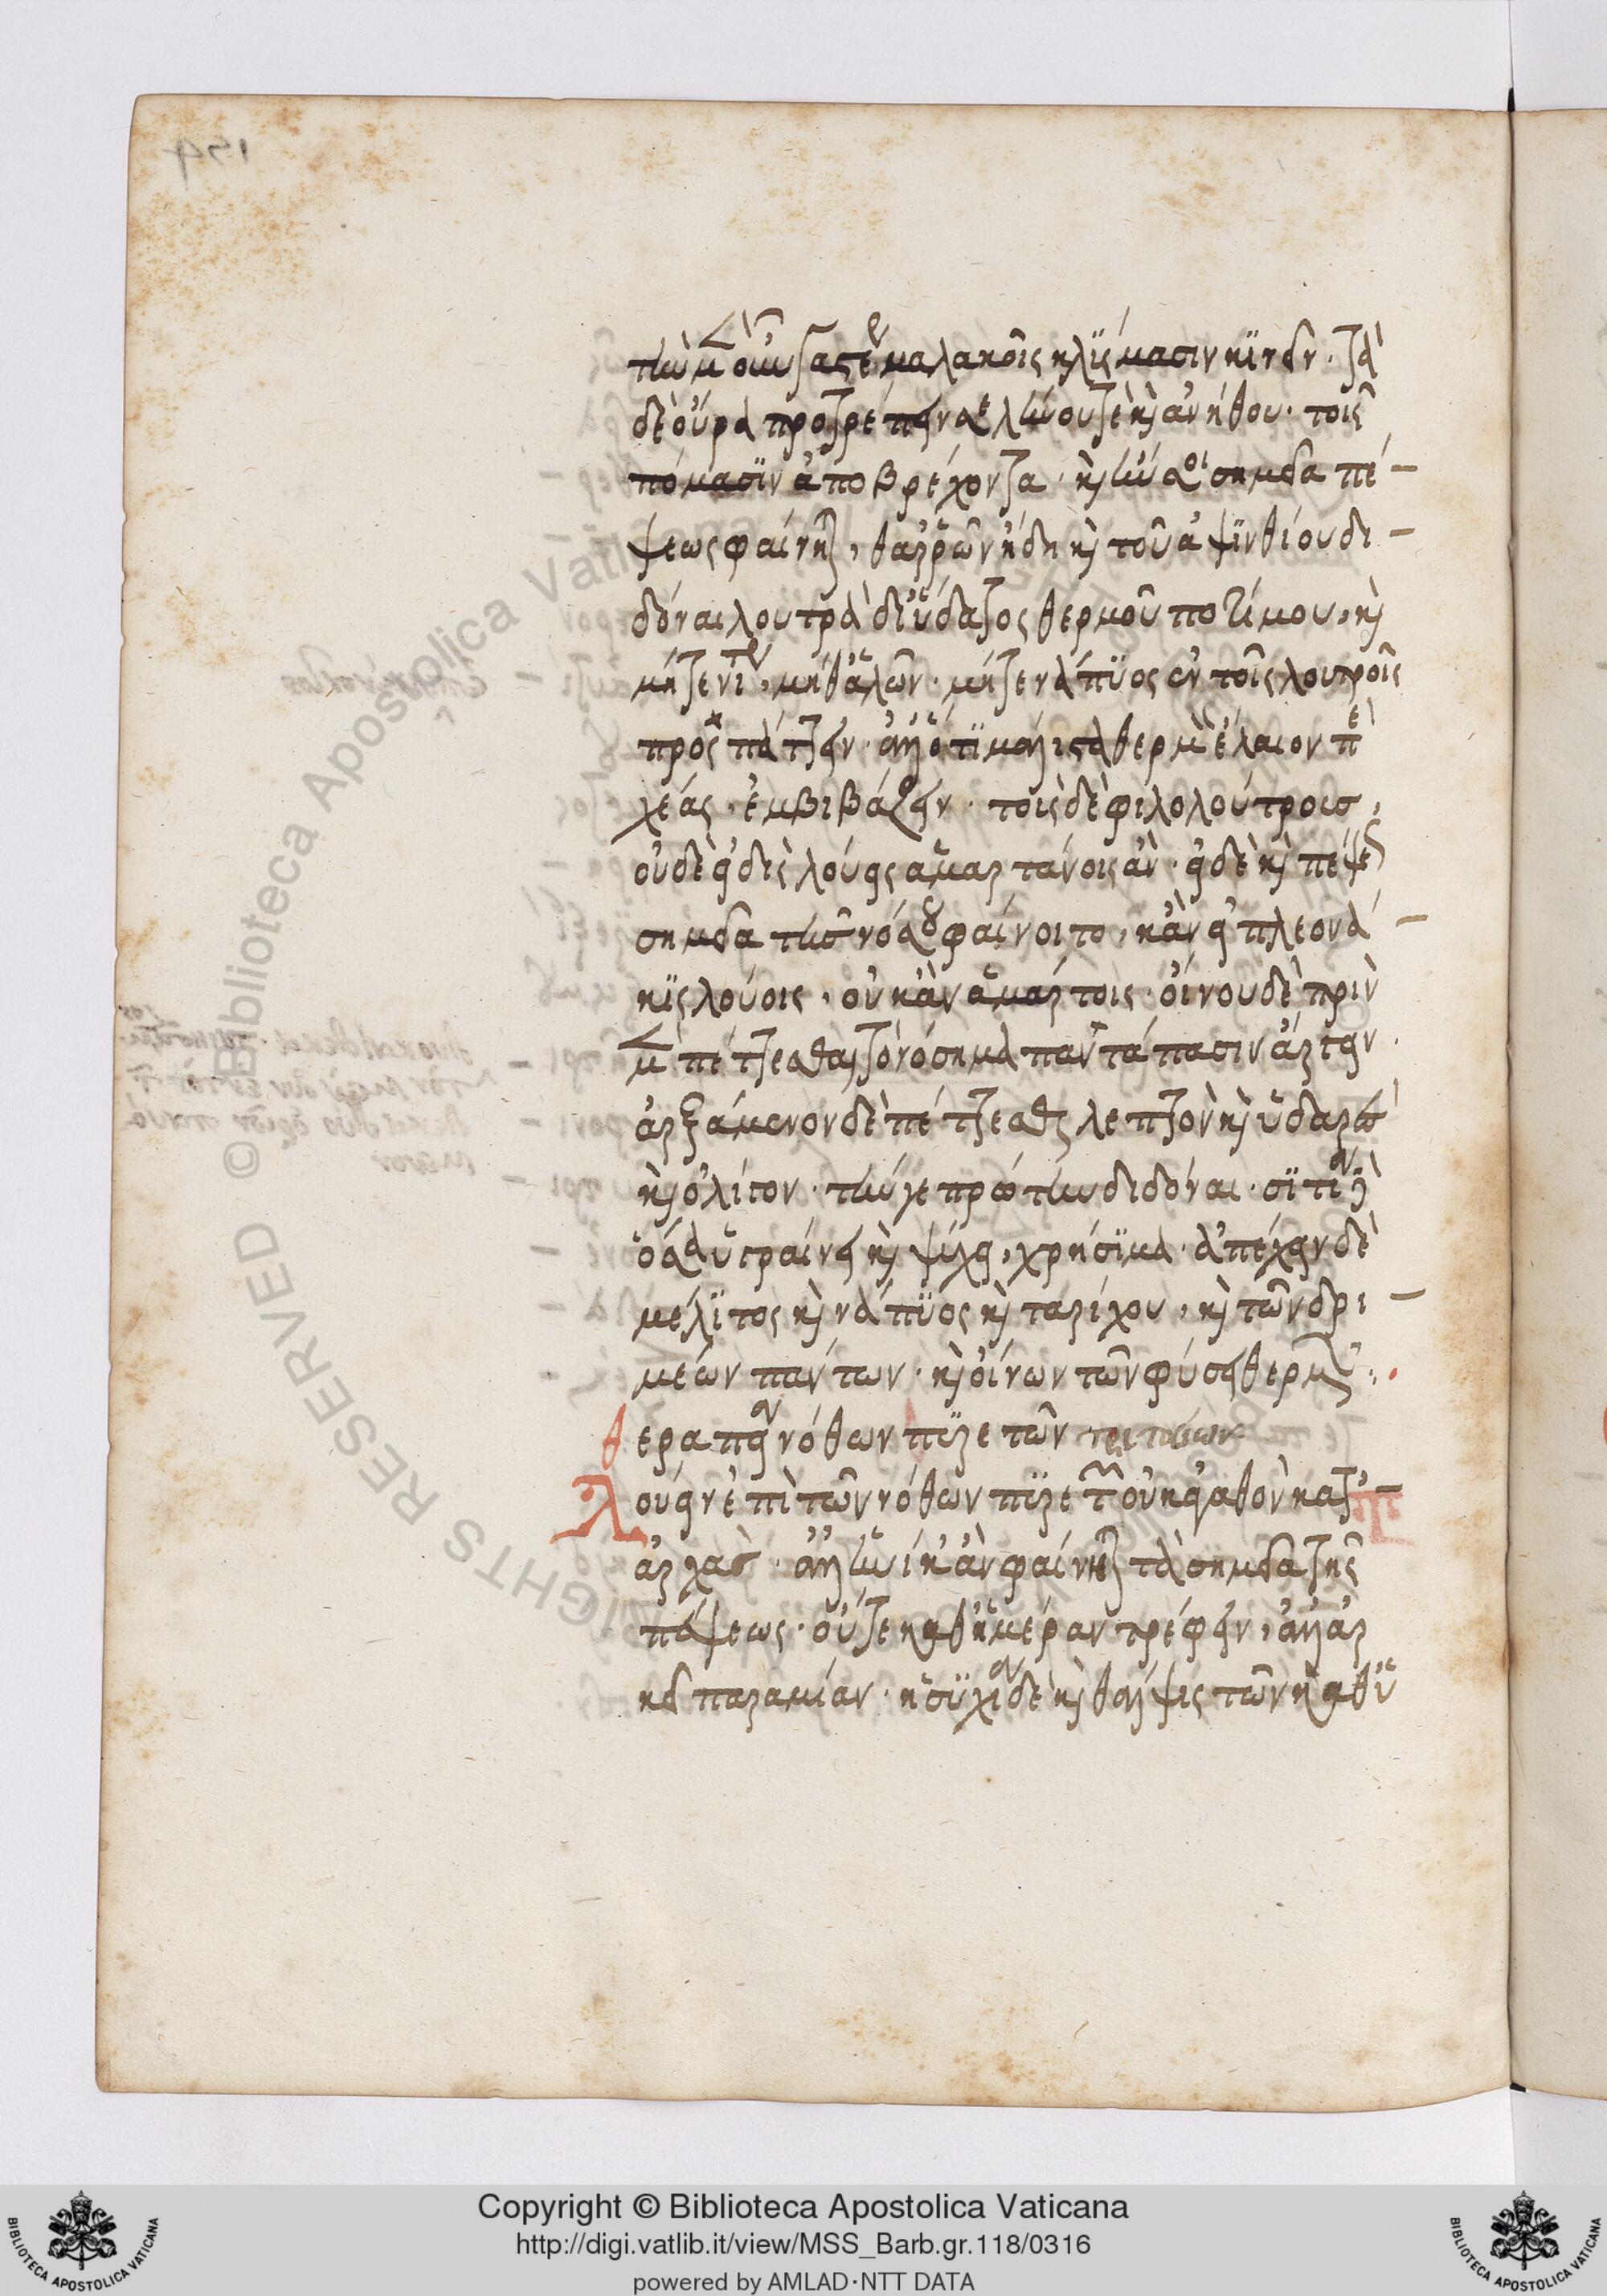 τὴν μὲν οὖν γαστέρα μαλακοῖς κλύσμασιν κινεῖν. τὰ
δὲ οὖρα προτρέπειν σελίνου τε καὶ ἀνήθου. τοῖς
πόμασιν ἀποβρέχοντα. καὶ ἢν αἱ σημεῖα πέ-
ψεως φαίνηται, θαρρῶν ἤδη καὶ τοῦ ἀψινθίου δι-
δόναι λουτρὰ δι' ὕδατος θερμοῦ ποτίμου, καὶ
μήτε νίτρον, μήθ' ἁλῶν. μήτε νάπυος ἐν τοῖς λουτροῖς
προσπάττειν. ἀλλ' ὅτι μάλιστα θερμὸν ἔλαιον περι
χέας, ἐμβιβάζειν. τοῖς δὲ φιλολούτροις,
οὐδὲ εἰ δὶς λούεις ἁμαρτάνοις ἄν. εἰ δὲ καὶ πέψεως
σημεῖα τῆς νόσου φαίνοιτο, κἂν εἰ πλεονά-
κις λούοις, οὐκ ἂν ἁμάρτοις. οἴνου δὲ πρὶν
μὲν πέττεσθαι τὸ νόσημα παντάπασιν ἀπέχειν.
ἀρξάμενον δὲ πέττεσθαι λεπτὸν καὶ ὑδαρῶ
καὶ ὀλίγον. τήν γε πρώτην διδόναι. σιτία δὲ
ὅσα ὑγραίνει καὶ ψύχει, χρήσιμα. ἀπέχειν δὲ
μέλιτος καὶ νάπυος καὶ ταρίχου, καὶ τῶν δρι-
μέων πάντων. καὶ οἴνων τῶν φύσει θερμῶν.
θεραπεία νόθων πυρετῶν τριταίων
Λούειν ἐπὶ τῶν νόθων πυρετῶν οὐκ ἀγαθὸν κατ'-
ἀρχὰς. ἀλλ' ἡνίκ' ἂν φαίνηται τὰ σημεῖα τῆς
πέψεως. οὔτε καθ' ἡμέραν τρέφειν, ἀλλ' ἀρ
κεῖ παρὰ μίαν. ἡσυχία δὲ καὶ θάλψις τῶν καθ' ὑ